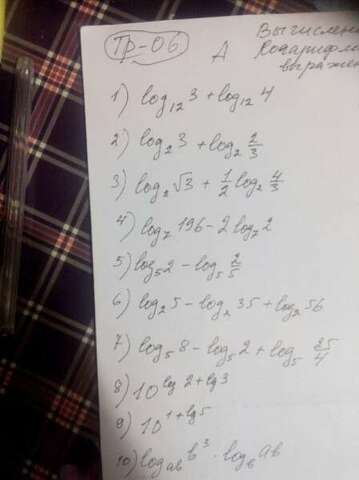 Тр-06
А
Вычислен
Логарифм
выраже
1) log₁₂ 3 + log₁₂ 4
2) log₂ 3 + log₂ 2/3
3) log₂ √3 + 1/2 log₂ 4/3
4) log₇ 196 - 2 log₇ 2
5) log₅ 2 - log₅ 2/5
6) log₂ 5 - log₂ 35 + log₂ 56
7) log₅ 8 - log₅ 2 + log₅ 25/4
8) 10^(lg 2 + lg 3)
9) 10^(1 + lg 5)
10) log_ab b³ · log_b ab